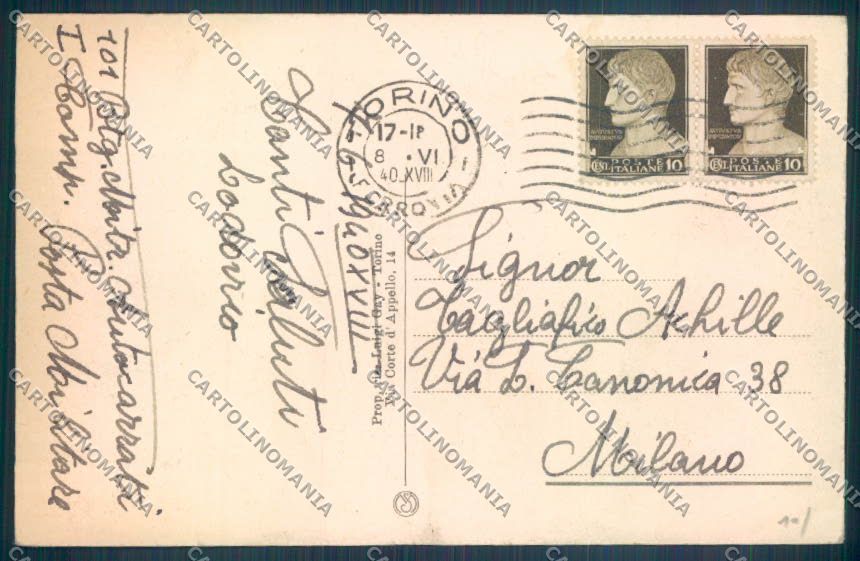 101 Btg. Mitr. Autocarrati
I Comp. Posta Militare
Tanti Saluti
Lodovio
7-6-1940 XVIII
TORINO
17-18
8 · VI
40.XVIII
FERROVIA
AVGVSTVS
IMPERATOR
CENT. POSTE ITALIANE 10
AVGVSTVS
IMPERATOR
CENT. POSTE ITALIANE 10
Prop. Ris. Luigi Gay - Torino
Via Corte d'Appello, 14
Signor
Tagliafico Achille
Via L. Canonica 38
Milano
CARTOLINOMANIA